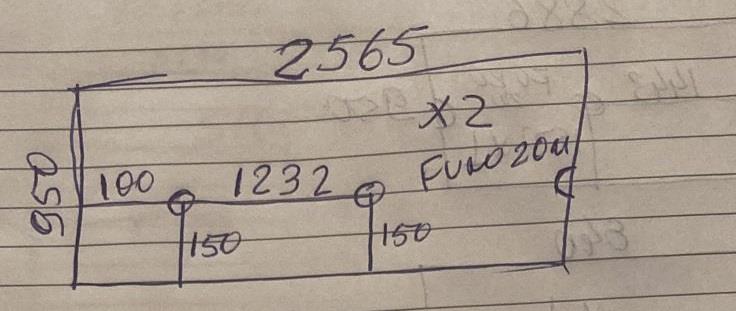 2565
X2
FURO 20M
950
100
1232
150
150